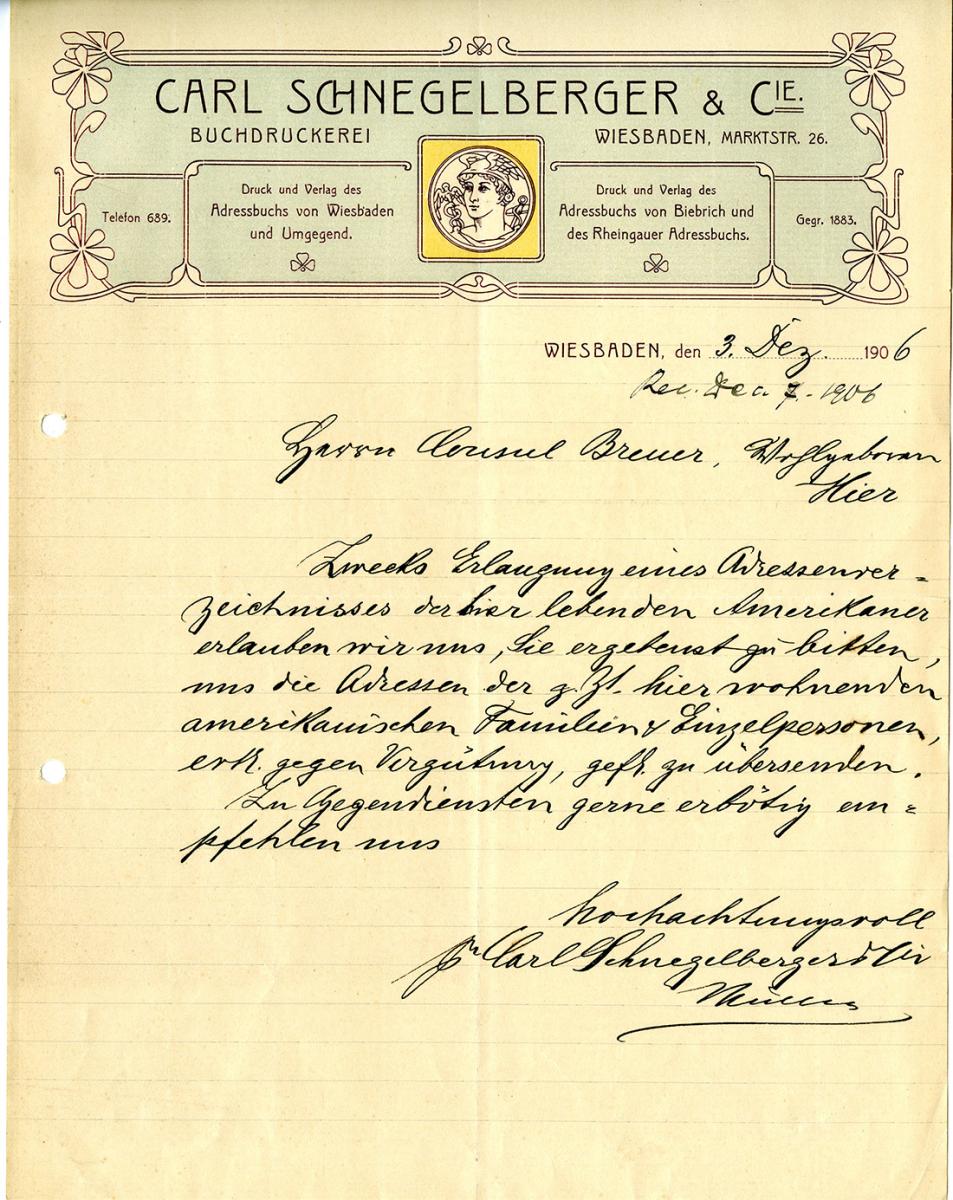 CARL SCHNEGELBERGER & CIE.
BUCHDRUCKEREI
WIESBADEN, MARKTSTR. 26.
Telefon 689.
Druck und Verlag des
Adressbuchs von Wiesbaden
und Umgegend.
Druck und Verlag des
Adressbuchs von Biebrich und
des Rheingauer Adressbuchs.
Gegr. 1883.
WIESBADEN, den 3. Dez. 1906
Rec. Dec. 7. - 1906
Herrn Consul Breuer, Wohlgeboren
Hier
Zwecks Erlangung eines Adressenver=
zeichnisses der hier lebenden Amerikaner
erlauben wir uns, Sie ergebenst zu bitten,
uns die Adressen der z. Zt. hier wohnenden
amerikanischen Familien & Einzelpersonen,
evtl. gegen Vergütung, gefl. zu übersenden.
Zu Gegendiensten gerne erbötig em=
pfehlen uns
hochachtungsvoll
Carl Schnegelberger & Cie